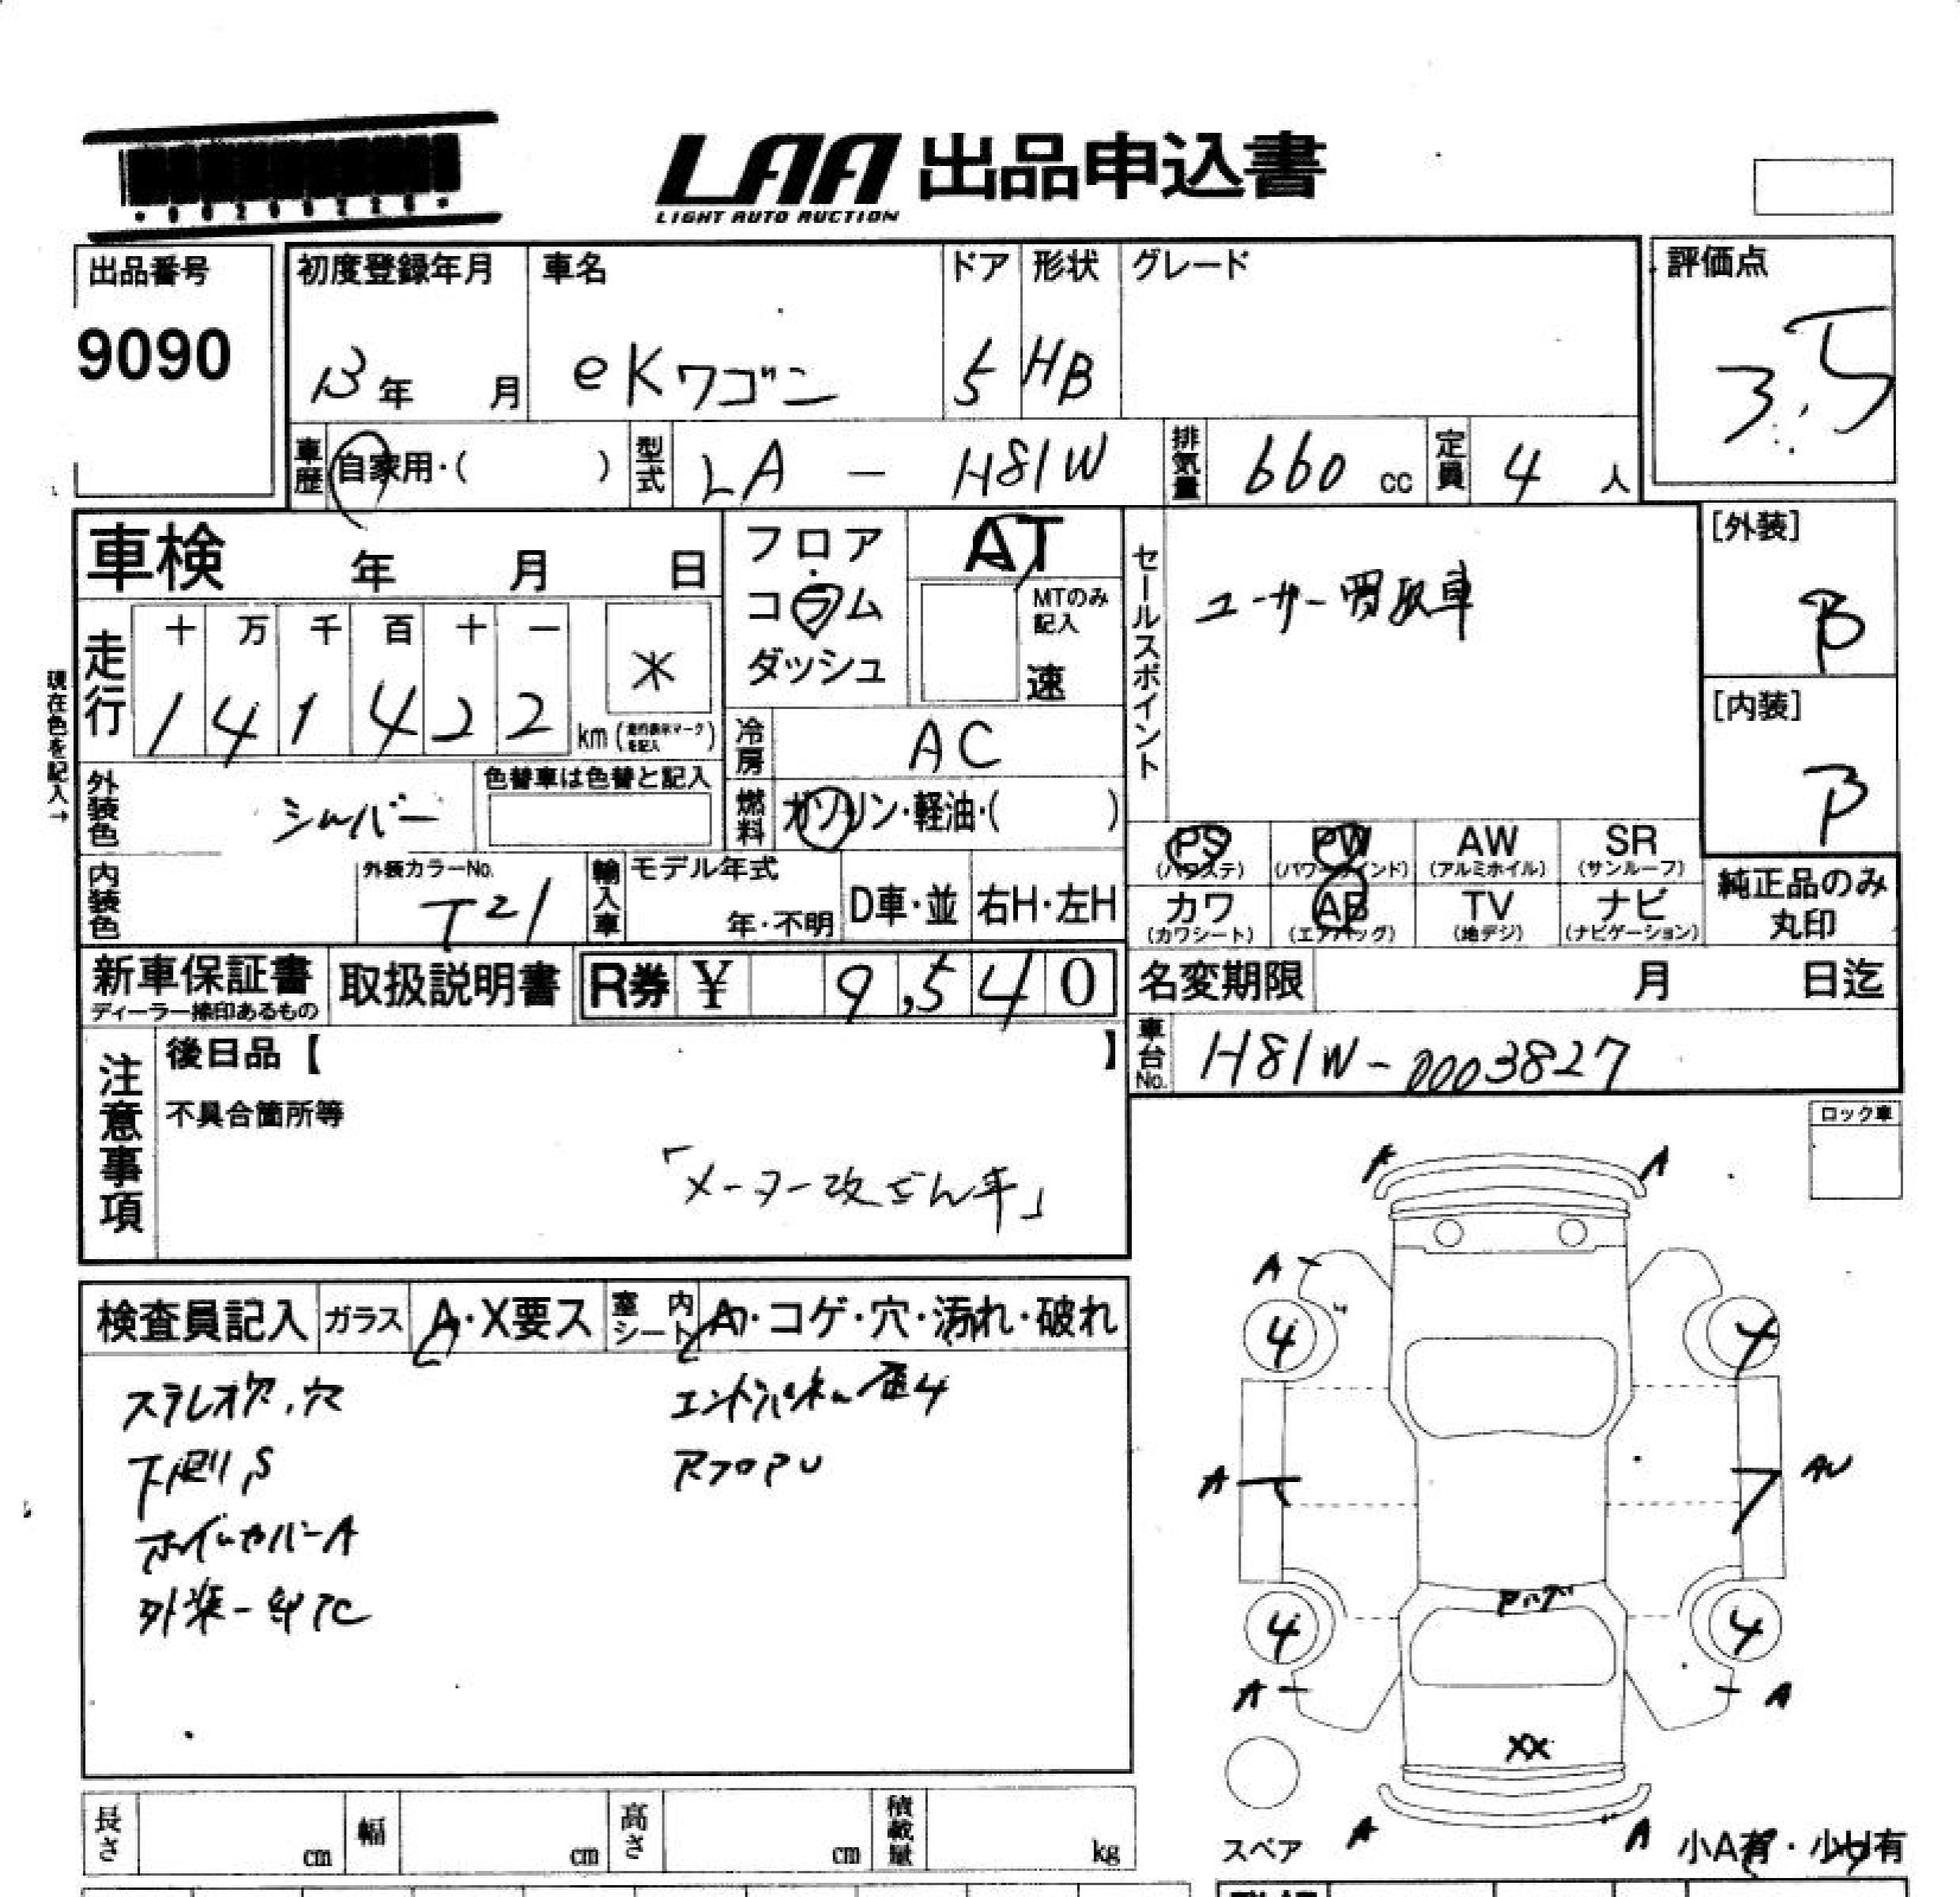 LAA 出品申込書
LIGHT AUTO AUCTION
出品番号
9090
初度登録年月
13年 月
車名
eKワゴン
ドア
5
形状
HB
グレード
評価点
3.5
車歴
自家用・( )
型式
LA - H81W
排気量
660 cc
定員
4 人
車検 年 月 日
現在色を記入→
走行
十 万 千 百 十 一
1 4 1 4 2 2 km
*
フロア・
コラム
ダッシュ
AT
MTのみ
記入
速
冷房
AC
燃料
ガソリン・軽油・( )
外装色
シルバー
色替車は色替と記入
内装色
外装カラーNo.
T21
輸入車
モデル年式
年・不明
D車・並
右H・左H
セールスポイント
ユーザー買取車
[外装]
B
[内装]
B
PS
(パワステ)
PW
(パワーウインド)
AW
(アルミホイル)
SR
(サンルーフ)
カワ
(カワシート)
AB
(エアバッグ)
TV
(地デジ)
ナビ
(ナビゲーション)
純正品のみ
丸印
新車保証書
ディーラー捺印あるもの
取扱説明書
R券 ¥ 9,540
名変期限 月 日迄
車台No.
H81W-0003827
注意事項
後日品【 】
不具合箇所等
「メーター改ざん車」
ロック車
検査員記入
ガラス
A・X要ス
室内シート
A・コゲ・穴・汚れ・破れ
ステレオ欠、穴
下廻り、S
ホイルカバーA
外装一部TC
エンドパネル歪4
A
A
A
4
4
A
AU
4
4
A
A
XX
A
A
スペア
小A有・小U有
長さ cm
幅 cm
高さ cm
積載量 kg